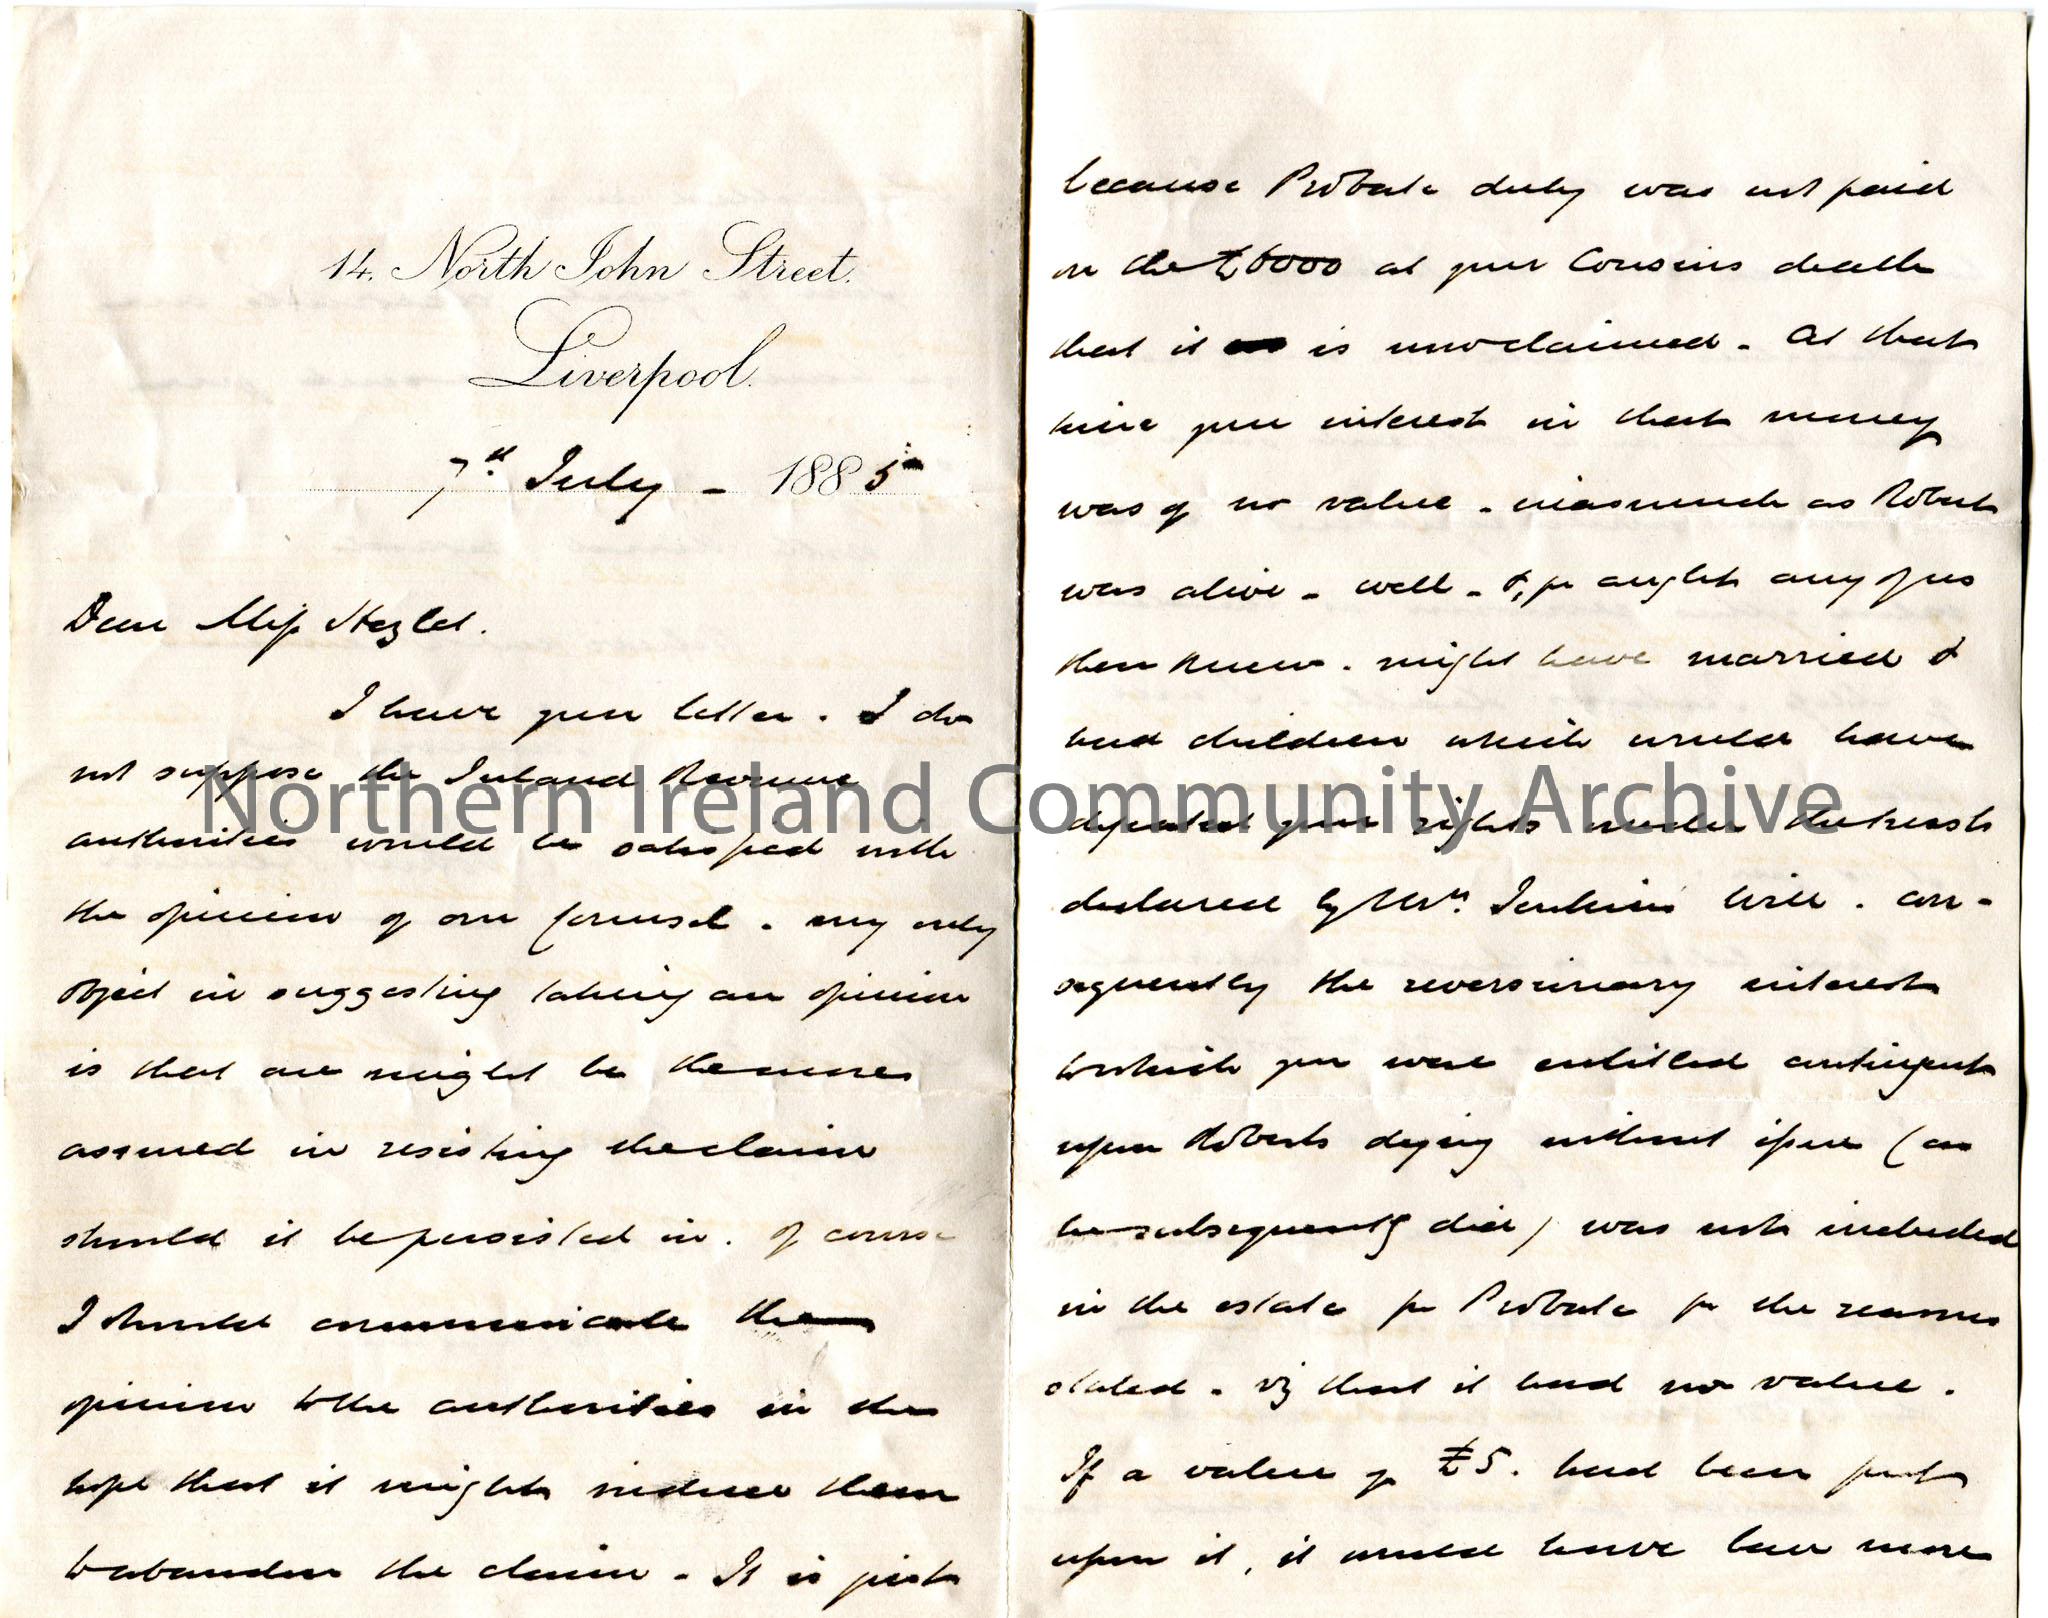 14. North John Street.
Liverpool.
7th July - 1885
Dear Miss Hezlet.
I have your letter. I do
not suppose the Inland Revenue
authorities would be satisfied with
the opinion of our Counsel. my only
object in suggesting taking an opinion
is that we might be the more
assured in resisting the claim
should it be persisted in. Of course
I should communicate the
opinion to the authorities in the
hope that it might induce them
to abandon the claim. It is just
because Probate duty was not paid
on the £6000 at your Cousins death
that it is now claimed. At that
time your interest in that money
was of no value - inasmuch as Robert
was alive - well - &, for aught any of us
then knew. might have married &
had children which would have
defeated your rights under the trusts
declared by Wm. Jenkins Will. con-
sequently the reversionary interest
to which you were entitled contingent
upon Roberts dying without issue (as
he subsequently did) was not included
in the estate for Probate for the reasons
stated - viz that it had no value.
If a value of £5. had been put
upon it, it would have been more
Northern Ireland Community Archive